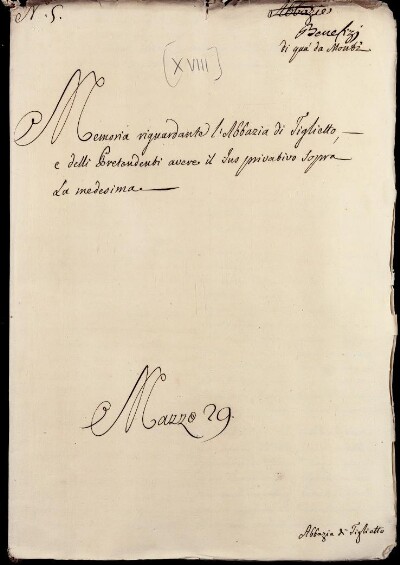 N. 5.
Abbazie
Benefizj
di quà da Monti
[XVIII]
Memoria riguardante l'Abbazia di Tiglietto,
e delli Pretendenti avere il Jus privativo sopra
La medesima.
Mazzo 29.
Abbazia di Tiglietto